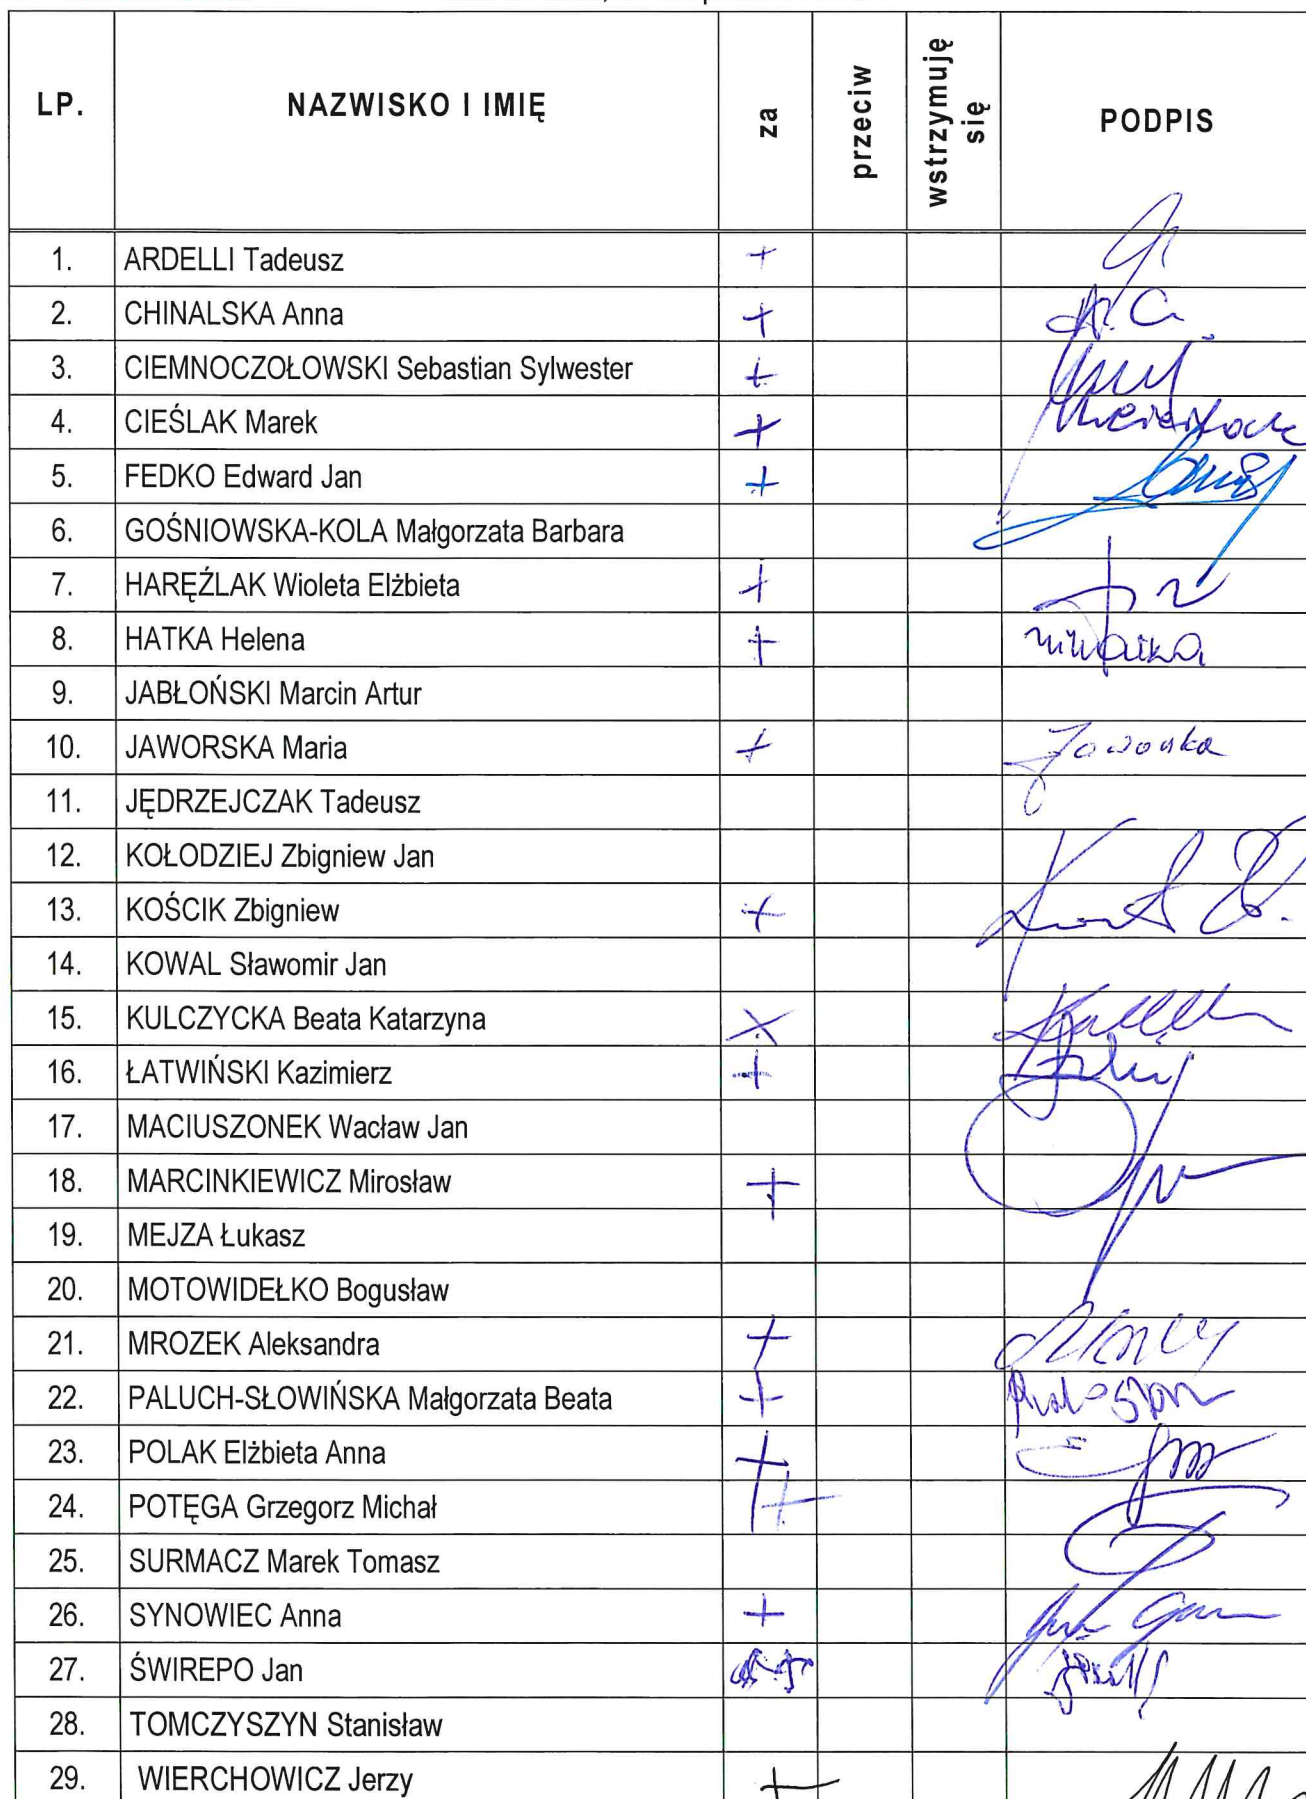 LP. NAZWISKO I IMIĘ za przeciw wstrzymuję się PODPIS
1. ARDELLI Tadeusz +
2. CHINALSKA Anna + A. C.
3. CIEMNOCZOŁOWSKI Sebastian Sylwester +
4. CIEŚLAK Marek +
5. FEDKO Edward Jan +
6. GOŚNIOWSKA-KOLA Małgorzata Barbara
7. HARĘŹLAK Wioleta Elżbieta +
8. HATKA Helena +
9. JABŁOŃSKI Marcin Artur
10. JAWORSKA Maria + Jaworska
11. JĘDRZEJCZAK Tadeusz
12. KOŁODZIEJ Zbigniew Jan
13. KOŚCIK Zbigniew +
14. KOWAL Sławomir Jan
15. KULCZYCKA Beata Katarzyna X
16. ŁATWIŃSKI Kazimierz +
17. MACIUSZONEK Wacław Jan
18. MARCINKIEWICZ Mirosław +
19. MEJZA Łukasz
20. MOTOWIDEŁKO Bogusław
21. MROZEK Aleksandra +
22. PALUCH-SŁOWIŃSKA Małgorzata Beata +
23. POLAK Elżbieta Anna +
24. POTĘGA Grzegorz Michał +
25. SURMACZ Marek Tomasz
26. SYNOWIEC Anna +
27. ŚWIREPO Jan +
28. TOMCZYSZYN Stanisław
29. WIERCHOWICZ Jerzy +